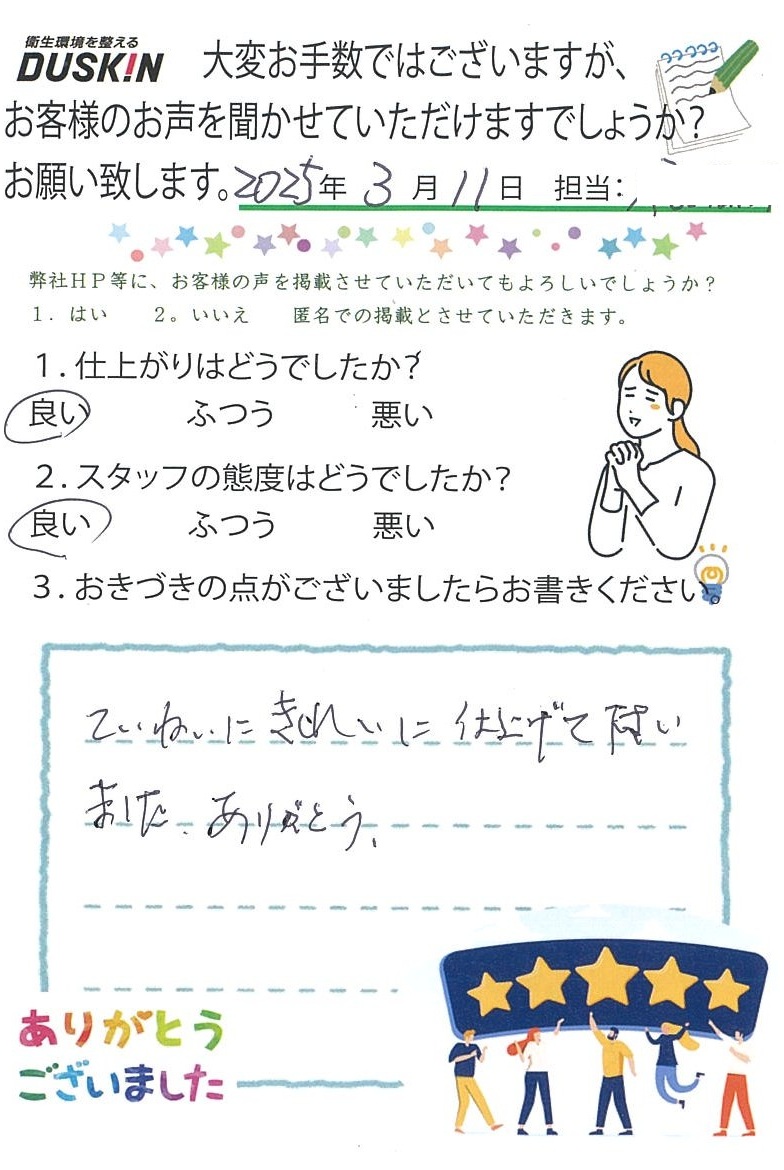 衛生環境を整える
DUSKIN 大変お手数ではございますが、
お客様のお声を聞かせていただけますでしょうか?
お願い致します。2025年 3月11日 担当:
弊社HP等に、お客様の声を掲載させていただいてもよろしいでしょうか?
1. はい 2。いいえ 匿名での掲載とさせていただきます。
1.仕上がりはどうでしたか?
良い ふつう 悪い
2.スタッフの態度はどうでしたか?
良い ふつう 悪い
3.おきづきの点がございましたらお書きください。
ていねいにきれいに仕上げて下さい
ました。ありがとう。
ありがとう
ございました